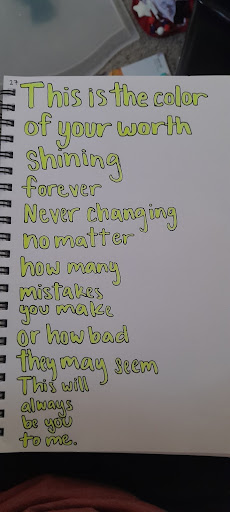 17
This is the color
of your worth
Shining
forever
Never changing
no matter
how many
mistakes
you make
or how bad
they may seem
This will
always
be you
to me.